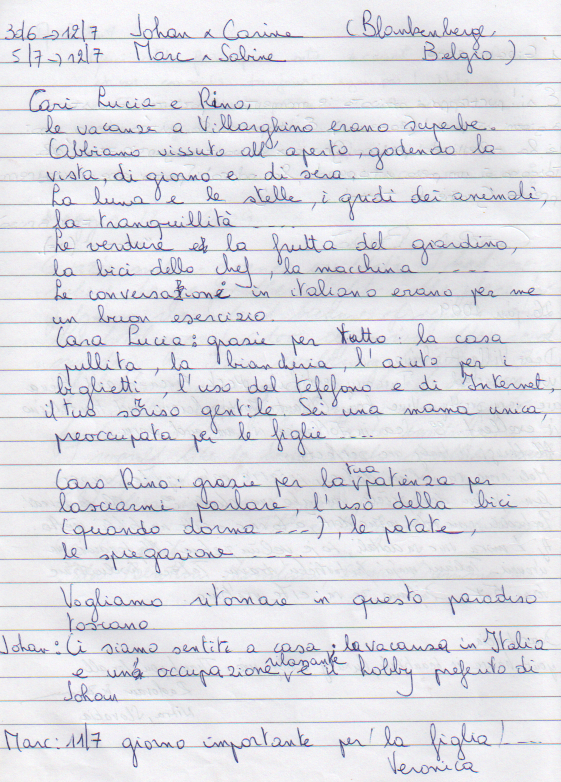 3d6 → 12/7 Johan x Carine (Blankenberge,
5/7 → 12/7 Marc x Sabine Belgio)
Cari Lucia e Rino,
le vacanze a Villarghino erano superbe.
Abbiamo vissuto all'aperto, godendo la
vista, di giorno e di sera.
La luna e le stelle, i gridi dei animali,
la tranquillità ....
Le verdure e la frutta del giardino,
la bici dello chef, la macchina ....
Le conversazione in italiano erano per me
un buon esercizio.
Cara Lucia: grazie per tutto: la casa
pullita, la bianderia, l'aiuto per i
biglietti, l'uso del telefono e di Internet,
il tuo sorriso gentile. Sei una mama unica,
preoccupata per le figlie ....
Caro Rino: grazie per la tua patienza per
lasciarmi parlare, l'uso della bici
(quando dorma ...), le patate,
le spiegazione ....
Vogliamo ritornare in questo paradiso
toscano
Johan: Ci siamo sentiti a casa: la vacanza in Italia
e una occupazione rilassante e il hobby preferito di
Johan
Marc: 11/7 giorno importante per la figlia! ....
Veronica